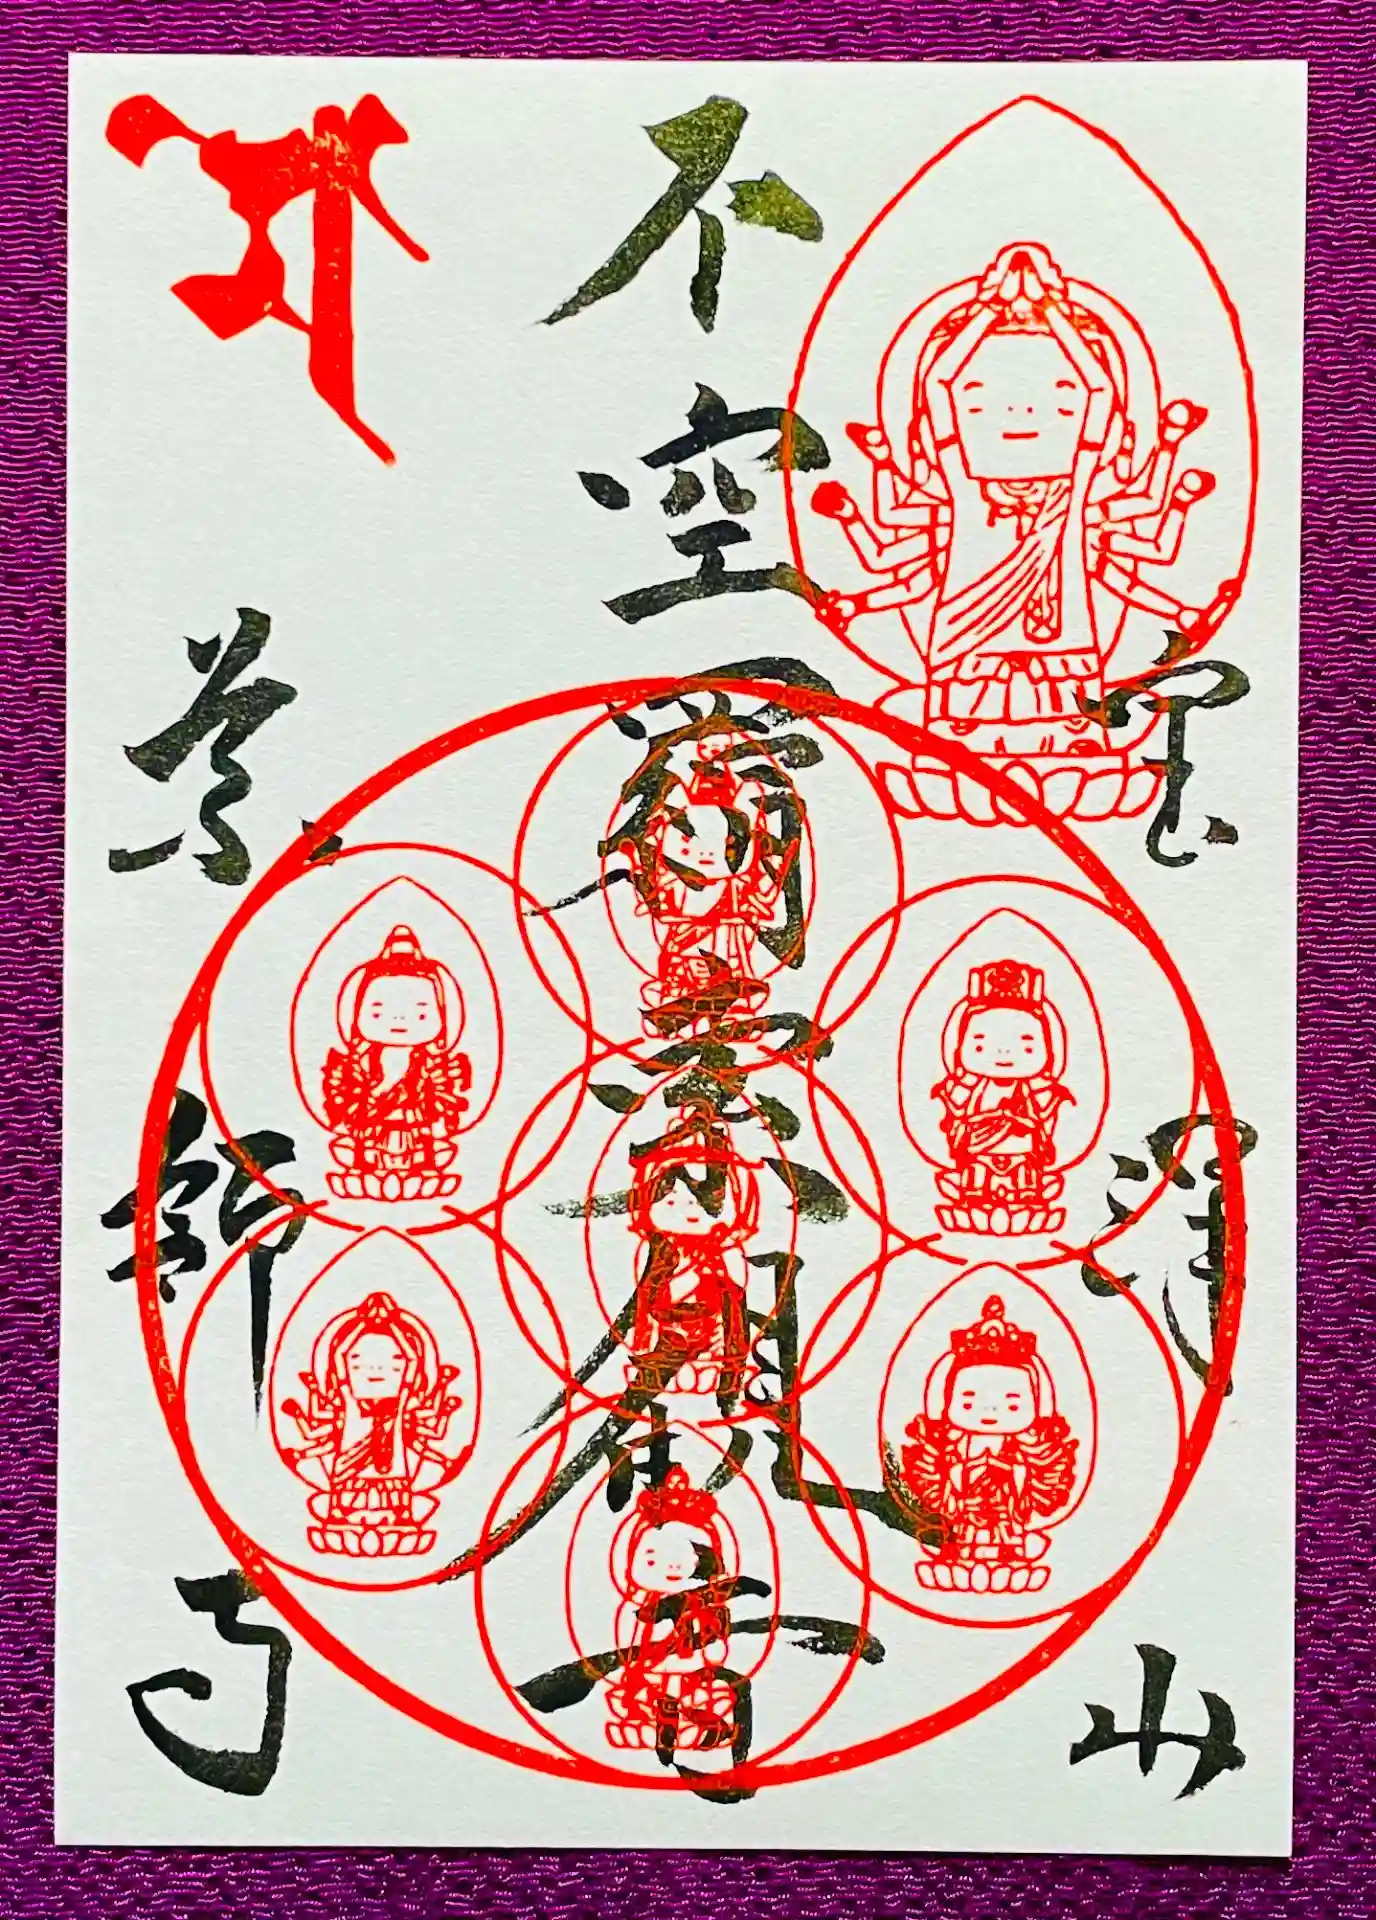 宝澤山
不空羂索観音
薬師寺